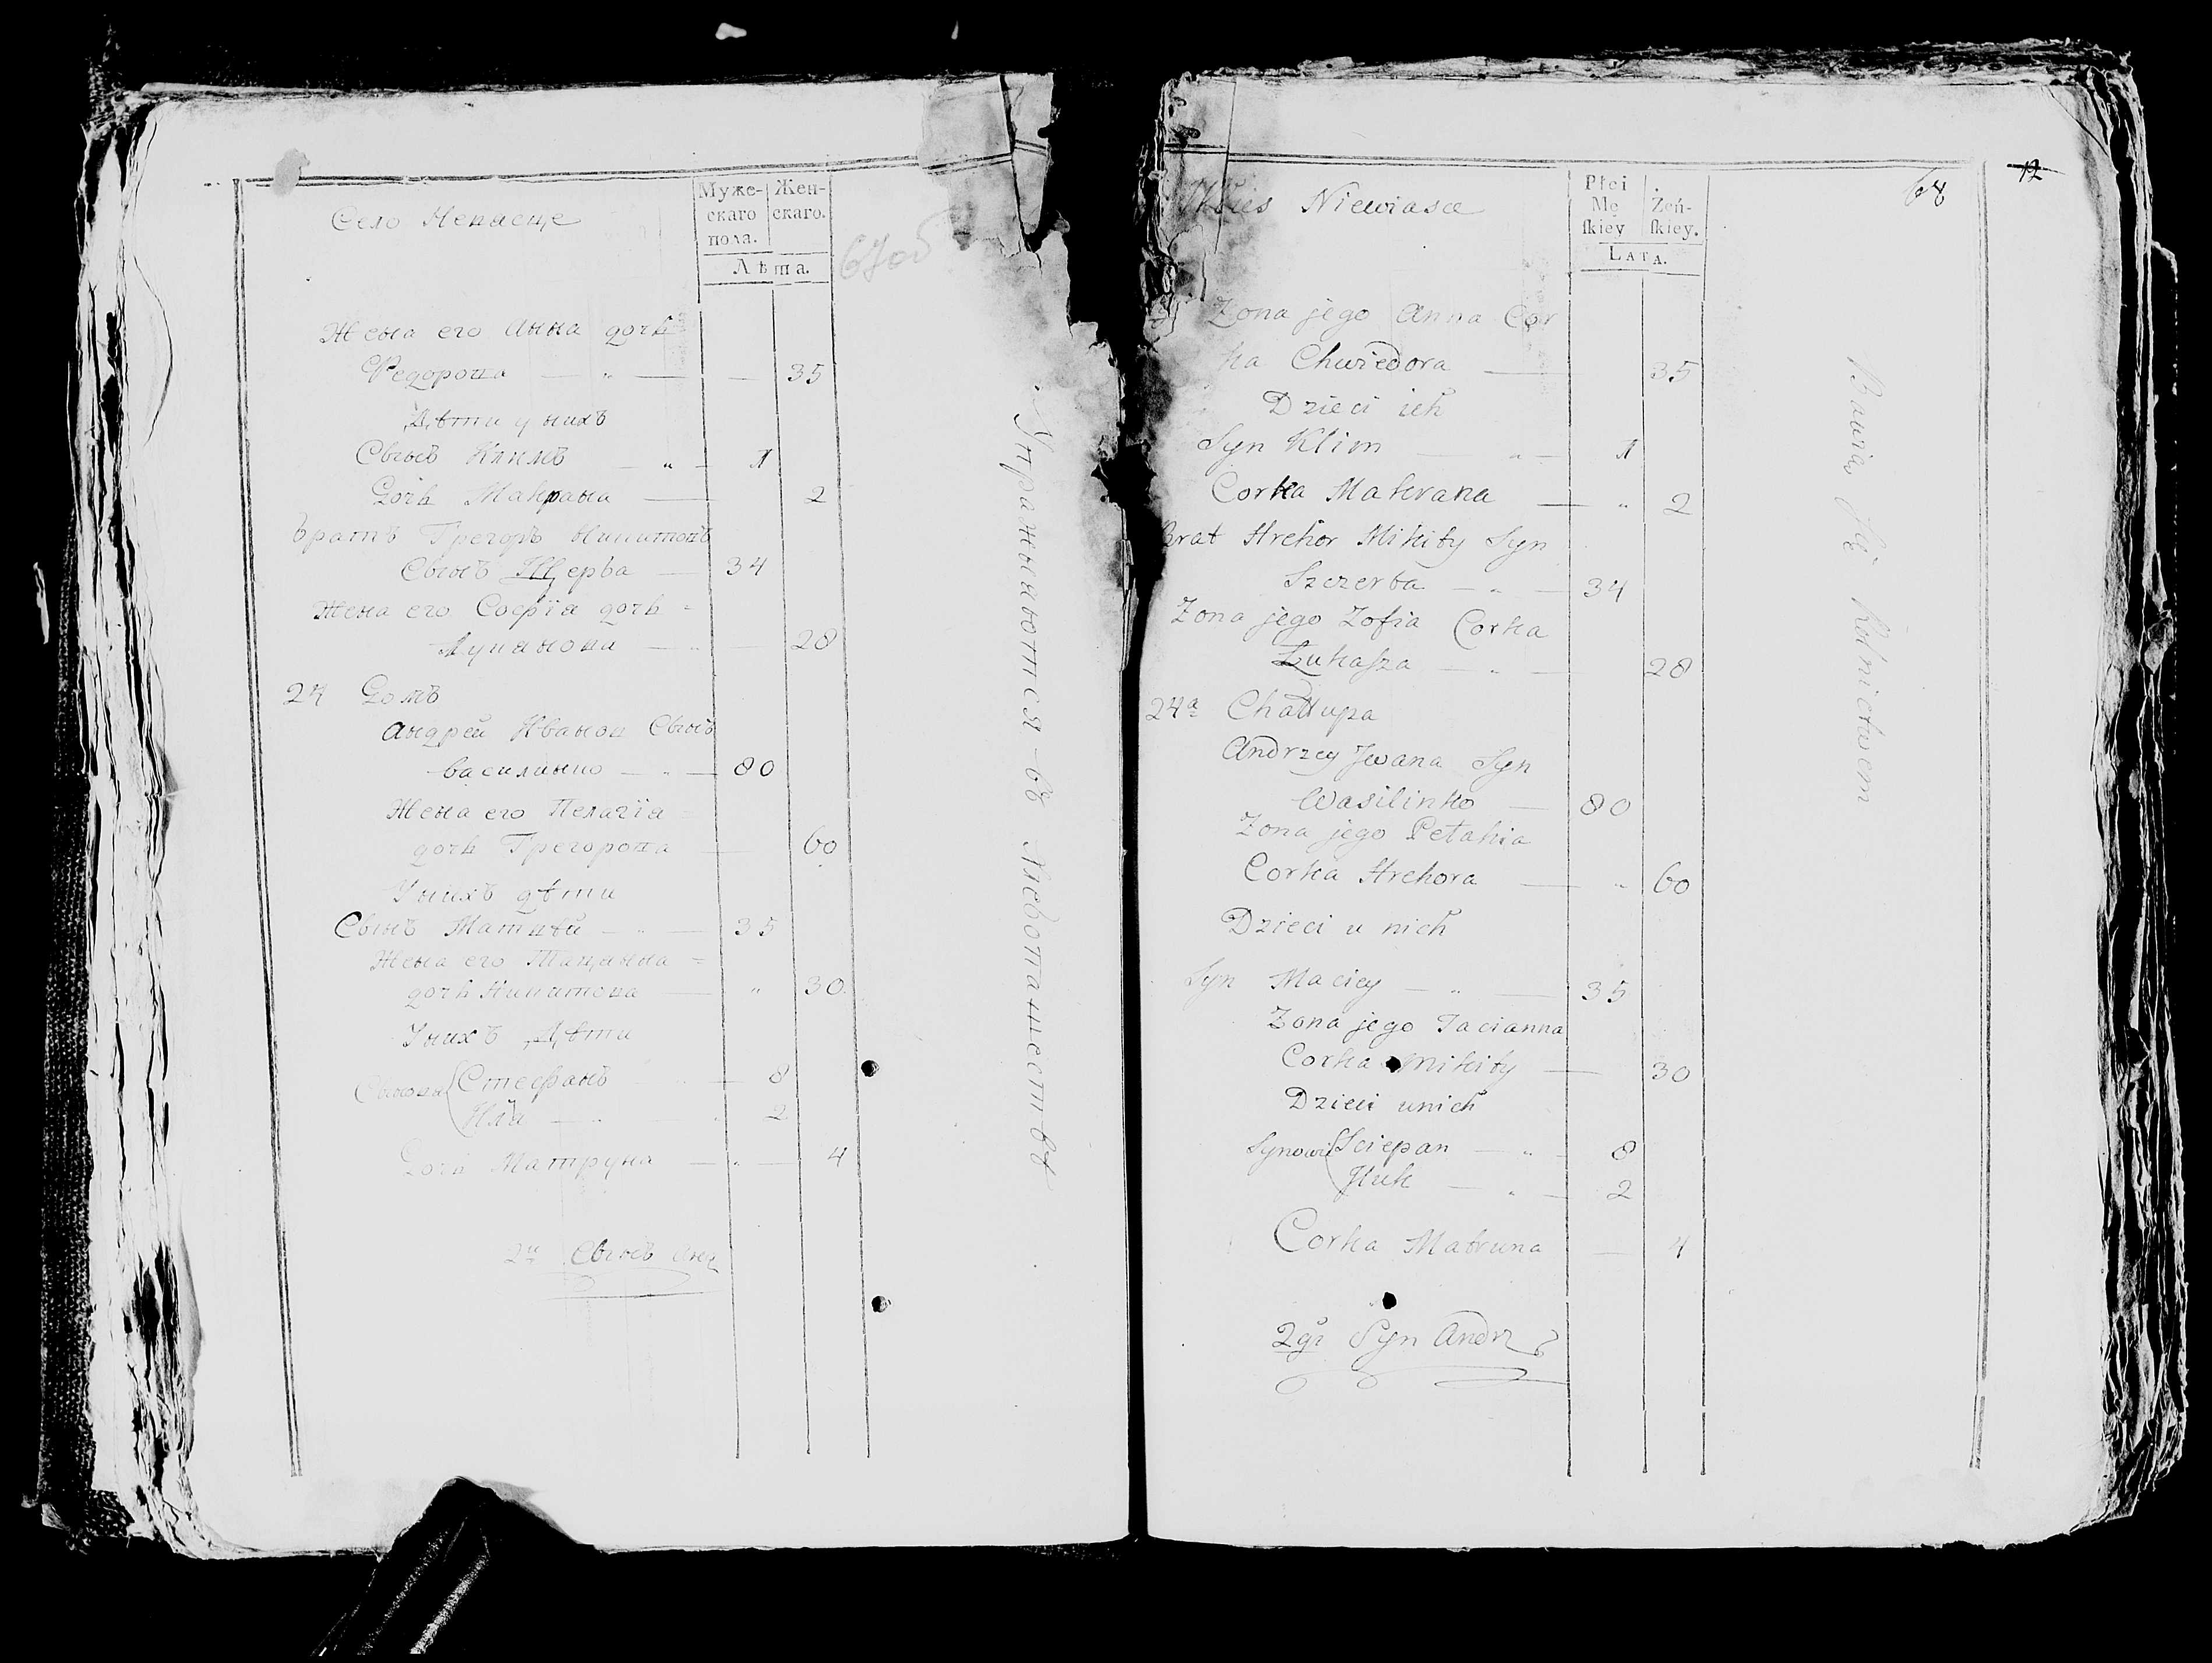 Село Непасце
Муже-
скаго
пола.
Жен-
скаго.
Лѣта.
67об
Жена его Анна дочь
Федорова — " — — 35
Дѣти у нихъ
Сынъ Климъ — " — 1
Дочь Макрана — 2
Братъ Грегоръ Никитовъ
Сынъ Щерба — 34
Жена его Софїя дочь =
Лукьянова — " — 28
24 Домъ
Андрей Иванов Сынъ
Василинко — " — 80
Жена его Пелагїа =
дочь Грегорова — 60
У нихъ дѣти
Сынъ Матвѣй — " — 35
Жена его Тацанна =
дочь Никитова — " 30
У нихъ Дѣти
Сынова Стефанъ — " — 8
Или — " — 2
Дочь Матруна — " — 4
2й Сынъ Анд
Упражняются въ Хлебопашествѣ
Wies Niewiasce
Płci
Mę
ſkiey
Żeń-
ſkiey.
LATA.
68
12
Zona jego Anna Cor
ka Chwiedora — 35
Dzieci ich
Syn Klim — " — 1
Corka Makrana — " 2
Brat Hrehor Mikity Syn
Szczerba — " — 34
Zona jego Zofia Corka
Łukaſza — " — 28
24a Chałłupa
Andrzey Jwana Syn
Wasilinko — 80
Zona jego Petahia
Corka Hrehora — " 60
Dzieci u nich
Syn Maciey — " — 35
Zona jego Tacianna
Corka Mikity — 30
Dzieci unich
Synowi Sciepan — " — 8
Jluk — " — 2
Corka Matruna — 4
2gi Syn Andrz
Bawią się Rolnictwem